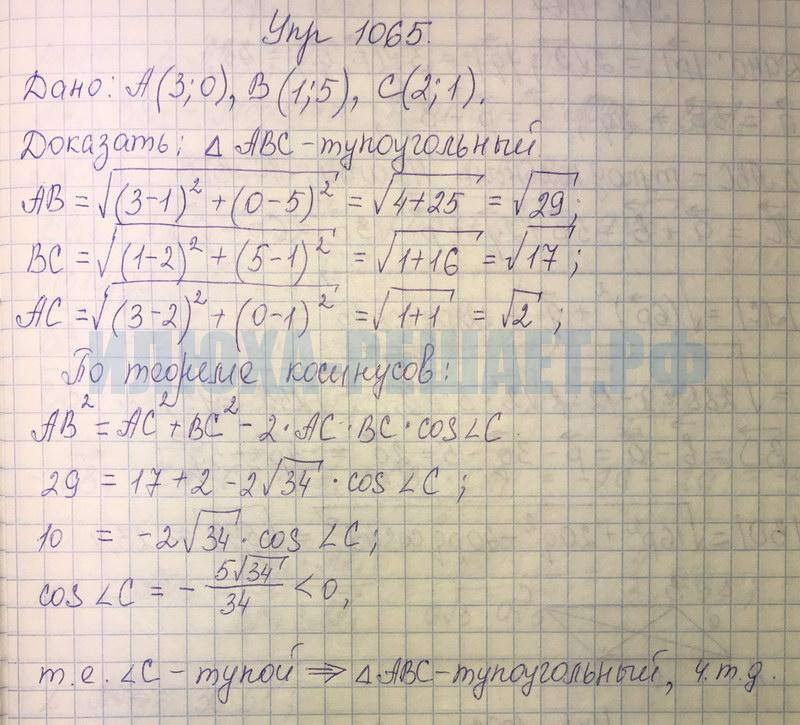 Упр 1065.
Дано: A(3;0), B(1;5), C(2;1).
Доказать: △ ABC - тупоугольный
AB = √((3-1)² + (0-5)²) = √(4+25) = √29;
BC = √((1-2)² + (5-1)²) = √(1+16) = √17;
AC = √((3-2)² + (0-1)²) = √(1+1) = √2;
ИЛЮХА-РЕШАЕТ.РФ
По теореме косинусов:
AB² = AC² + BC² - 2·AC·BC·cos∠C.
29 = 17 + 2 - 2√34 · cos∠C;
10 = -2√34 · cos ∠C;
cos∠C = - 5√34/34 < 0,
т.е. ∠C - тупой ⇒ △ABC - тупоугольный, ч.т.д.